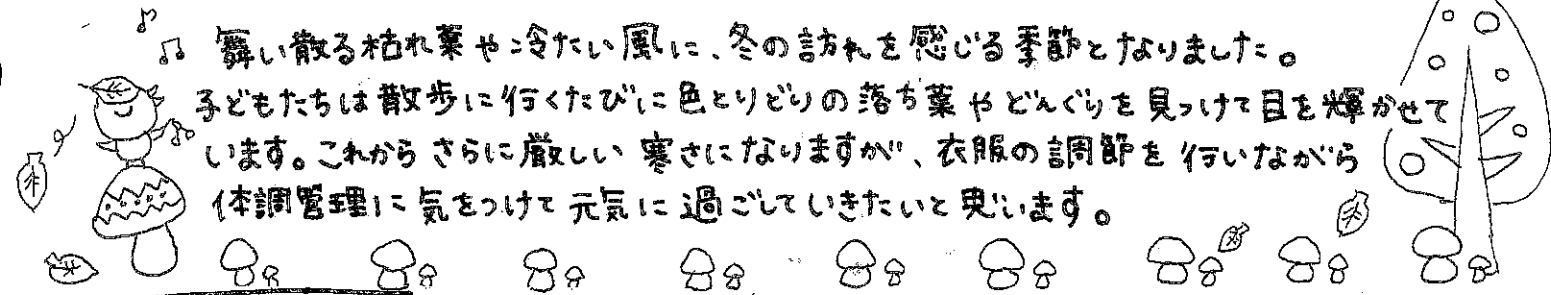 舞い散る枯れ葉や冷たい風に、冬の訪れを感じる季節となりました。
子どもたちは散歩に行くたびに色とりどりの落ち葉やどんぐりを見つけて目を輝かせて
います。これからさらに厳しい寒さになりますが、衣服の調節を行いながら
体調管理に気をつけて元気に過ごしていきたいと思います。